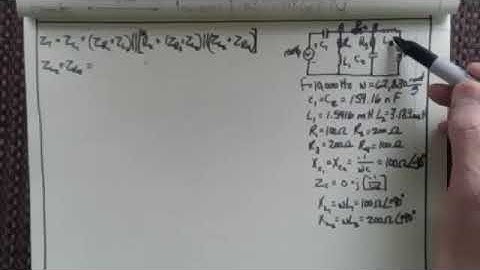 Z_T = Z_C1 + (Z_R1+Z_L1)||[Z_R2 + (Z_R3+Z_C2)||(Z_L2+Z_R4)]
Z_L2+Z_R4 =
C1
R1
L1
R3
C2
f=10,000Hz ω=62,830 rad/s
C1 = C2 = 159.16 nF
L1 = 1.5916 mH L2 = 3.183 mH
R1 = 100Ω R2 = 200Ω
R3 = 200Ω R4 = 100Ω
X_C1 = X_C2 = -1/ωC = 100Ω∠-90°
Z_C = 0 + j[-1/ωC]
X_L1 = ωL1 = 100Ω∠+90°
X_L2 = ωL2 = 200Ω∠+90°